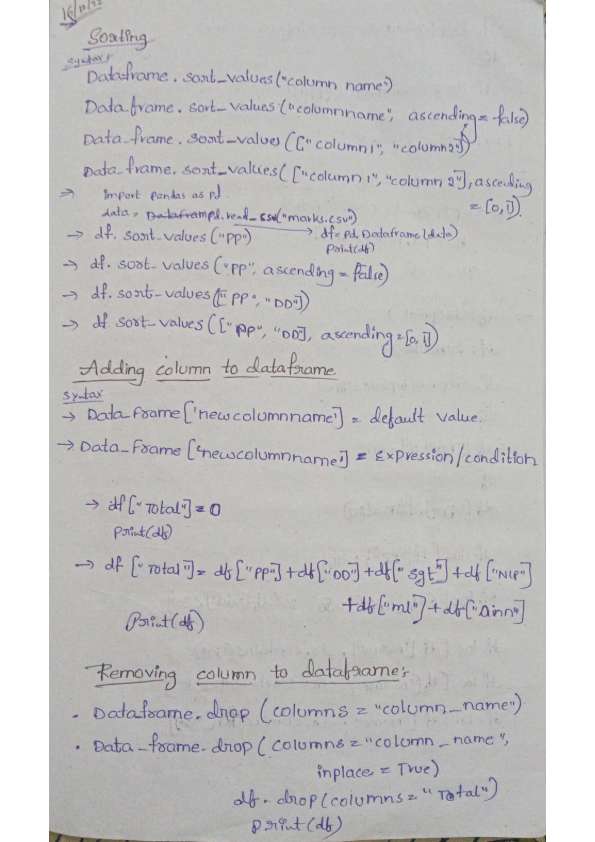 Sorting
Syntax:
Dataframe. sort_values("column name")
Data.frame. sort_values ("columnname", ascending = false)
Data_frame. sort_values (["column1", "column2"])
Data_frame. sort_values (["column1", "column 2"], ascending
= [0,1]).
⇒ import pandas as pd
data = pd.read_csv("marks.csv")
df = pd. Dataframe (data)
print(df)
→ df. sort_values ("PP")
→ df. sort_values ("PP", ascending = false)
→ df. sort_values (["PP", "DD"])
→ df sort_values (["PP", "DD], ascending = [0,1])
Adding column to dataframe
syntax
→ Data_frame ['newcolumnname'] = default value.
→ Data_frame ['newcolumnname'] = Expression/condition
→ df ["Total"] = 0
print(df)
→ df ["Total"] = df ["PP"] + df["DD"] + df["sgt"] + df ["NLP"]
+ df["ml"] + df["Ainn"]
print(df)
Removing column to dataframe:
. Dataframe. drop (columns = "column_name")
. Data_frame. drop (columns = "column_name",
inplace = True)
df. drop (columns = "Total")
print (df)